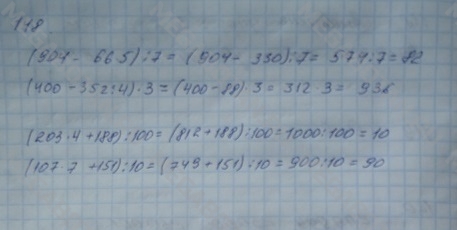 118
(904 - 66·5):7 = (904 - 330):7 = 574:7 = 82
(400 - 352:4)·3 = (400 - 88)·3 = 312·3 = 936
(203·4 + 188):100 = (812 + 188):100 = 1000:100 = 10
(107·7 + 151):10 = (749 + 151):10 = 900:10 = 90